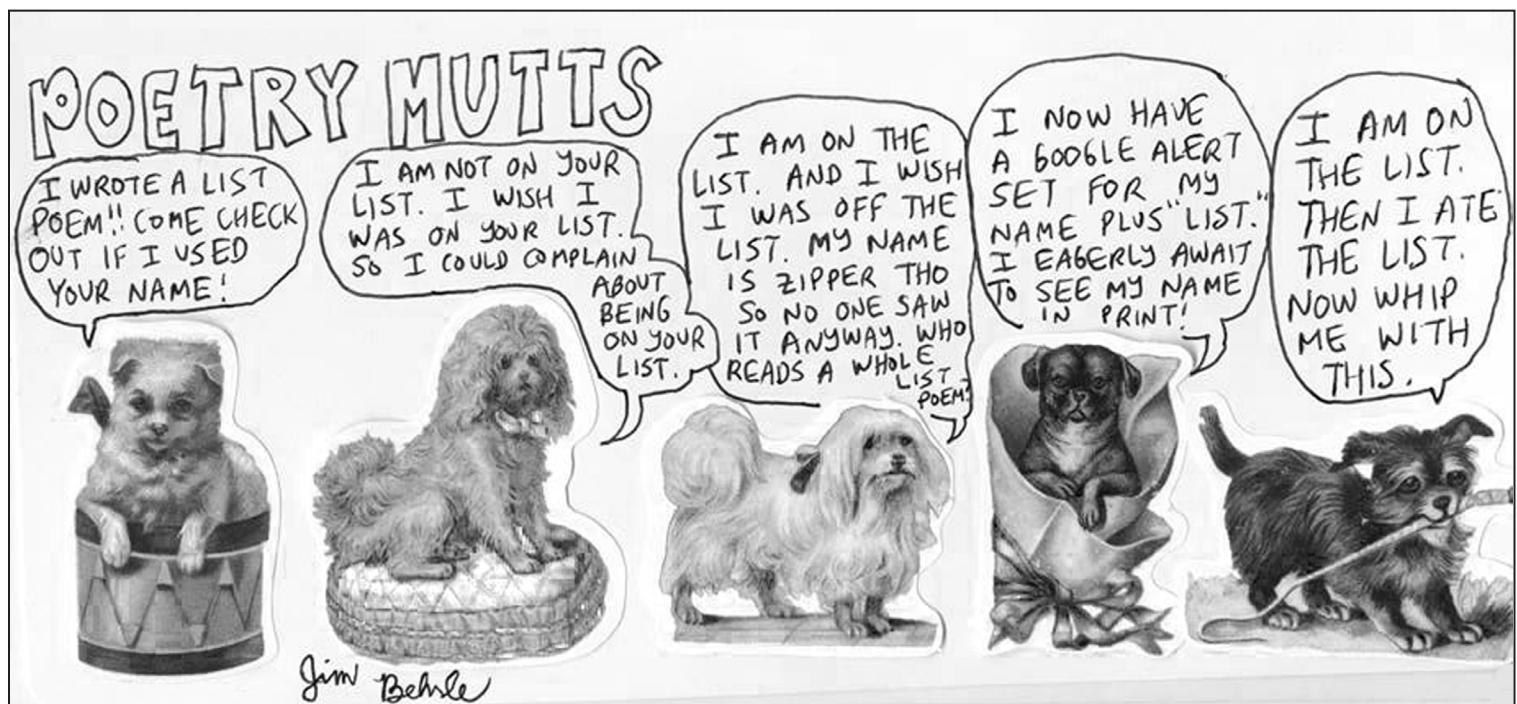 POETRY MUTTS
I WROTE A LIST
POEM!! COME CHECK
OUT IF I USED
YOUR NAME!
I AM NOT ON YOUR
LIST. I WISH I
WAS ON YOUR LIST.
SO I COULD COMPLAIN
ABOUT
BEING
ON YOUR
LIST.
I AM ON THE
LIST. AND I WISH
I WAS OFF THE
LIST. MY NAME
IS ZIPPER THO
SO NO ONE SAW
IT ANYWAY. WHO
READS A WHOLE
LIST
POEM?
I NOW HAVE
A GOOGLE ALERT
SET FOR MY
NAME PLUS "LIST."
I EAGERLY AWAIT
TO SEE MY NAME
IN PRINT!
I AM ON
THE LIST.
THEN I ATE
THE LIST.
NOW WHIP
ME WITH
THIS.
Jim Behrle